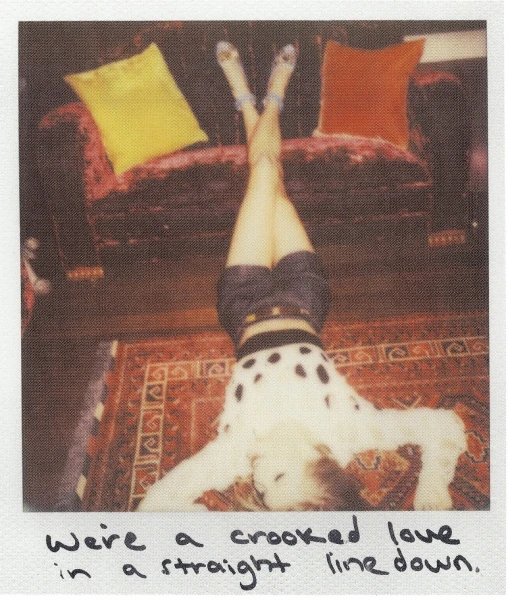 We're a crooked love
in a straight line down.